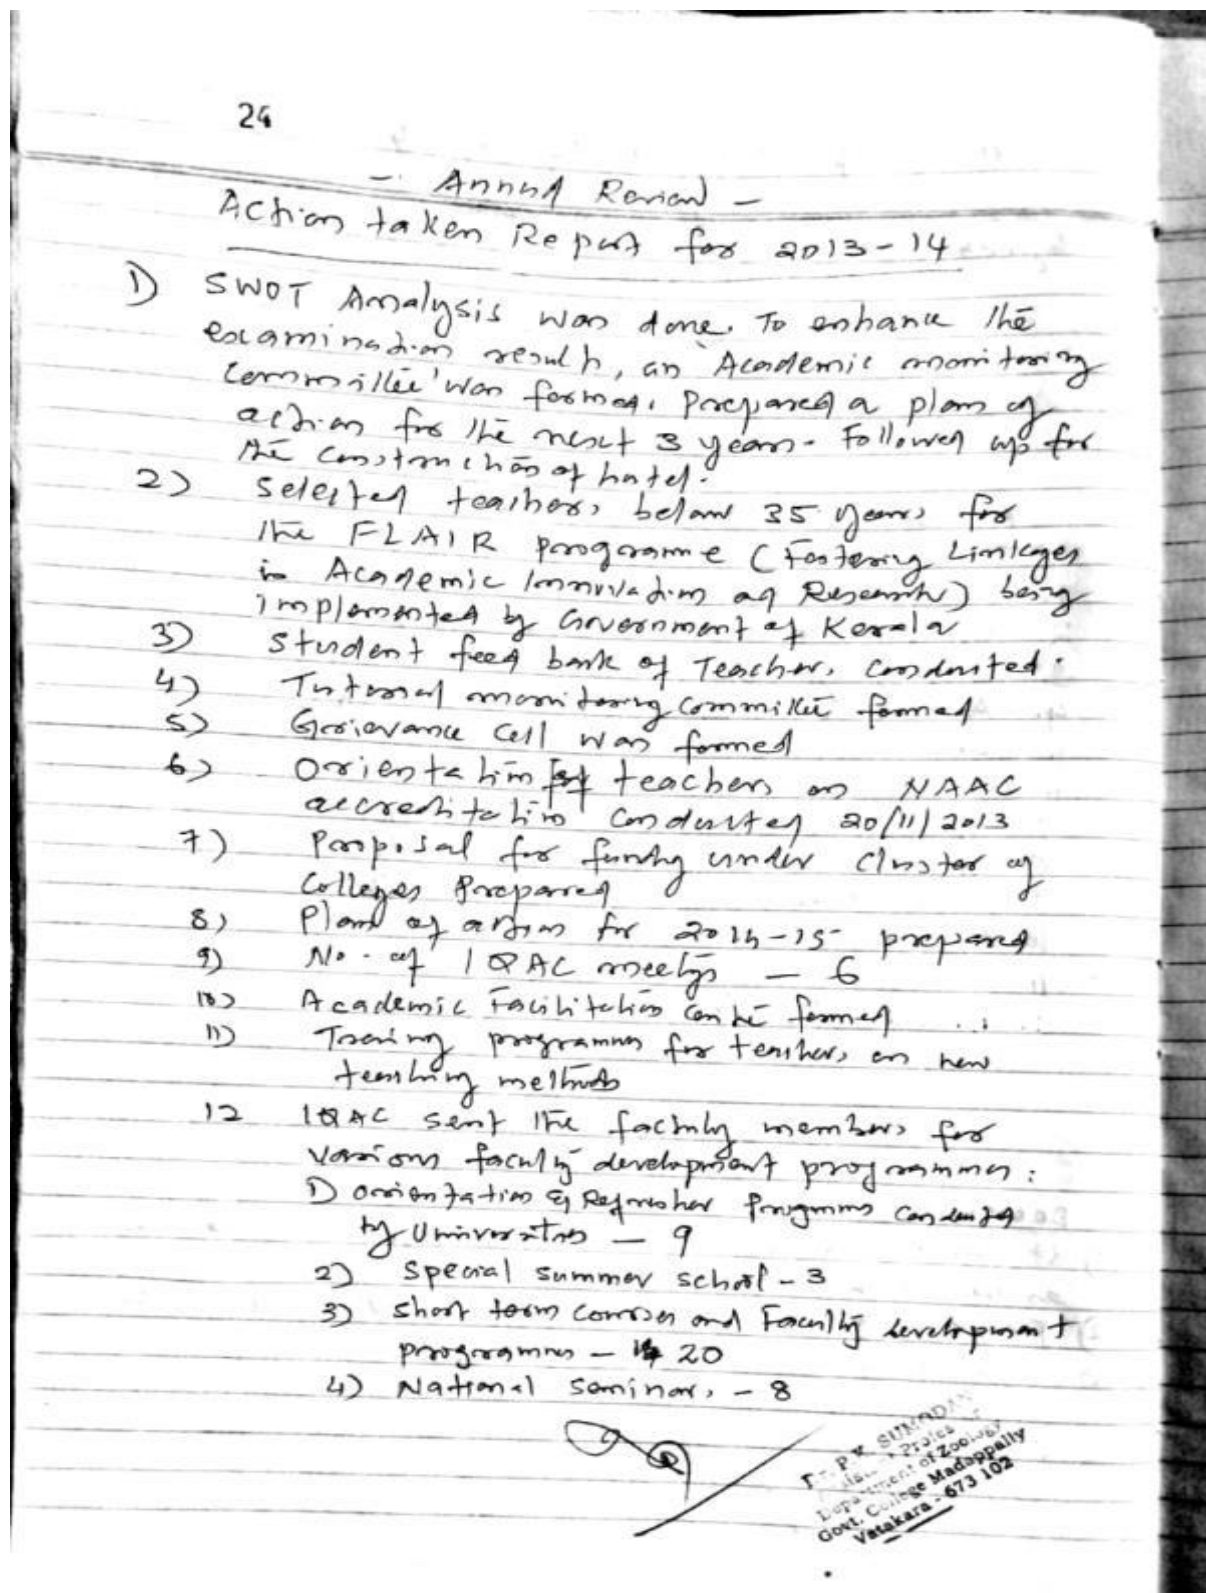 24
- Annual Review -
Action taken Report for 2013-14
1) SWOT Analysis was done. To enhance the
examination result, an 'Academic monitoring
Committee' was formed. Prepared a plan of
action for the next 3 years. Followed up for
the construction of hotel.
2) Selected teachers below 35 years for
the FLAIR programme (Fostering Linkages
in Academic Innovation and Research) being
implemented by Government of Kerala
3) Student feed back of Teachers conducted.
4) Tutorial monitoring Committee formed
5) Grievance Cell was formed
6) Orientation of teachers on NAAC
accreditation conducted 20/11/2013
7) Proposal for funding under Cluster of
Colleges Prepared
8) Plan of action for 2014-15 prepared
9) No. of IQAC meetings - 6
10) Academic Facilitation Centre formed
11) Training programmes for teachers on new
teaching methods
12 IQAC sent the faculty members for
various faculty development programmes:
1) Orientation & Refresher Programms conducted
by Universities - 9
2) Special summer school - 3
3) Short term Courses and Faculty development
programmes - 20
4) National Seminars - 8
P.K. SUMODAN
Department of Zoology
Govt. College Madappally
Vatakara - 673 102